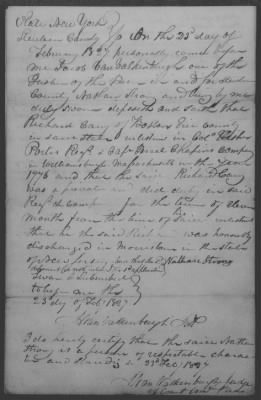 State New York
Steuben County } On the 23d day of
February 1827 personally came before
me Jacob Van Valkenburgh one of the
Justices of the Peace in and for said
County Nathan Strong and being by me
duly sworn deposeth and saith that
Richard Cary of
in same State enlisted in Colo Elisha
Porter Regt & Capt Chapins Company
in Williamsburgh Massachusetts in the year
1776 and that the said Richard Cary
was a private and did duty in said
Regt & Comp for the term of eleven
month from the time of said enlistment
that he the said Richard was honorably
discharged in Morristown in the State
of New Jersey
Nathan Strong
Sworn & Subscribed
to before me this
23 day of Feb 1827
J Van Valkenburgh
I do hereby certify that the said Nathan
Strong is a person of respectable character
23d Feb 1827
J Van Valkenburgh Judge